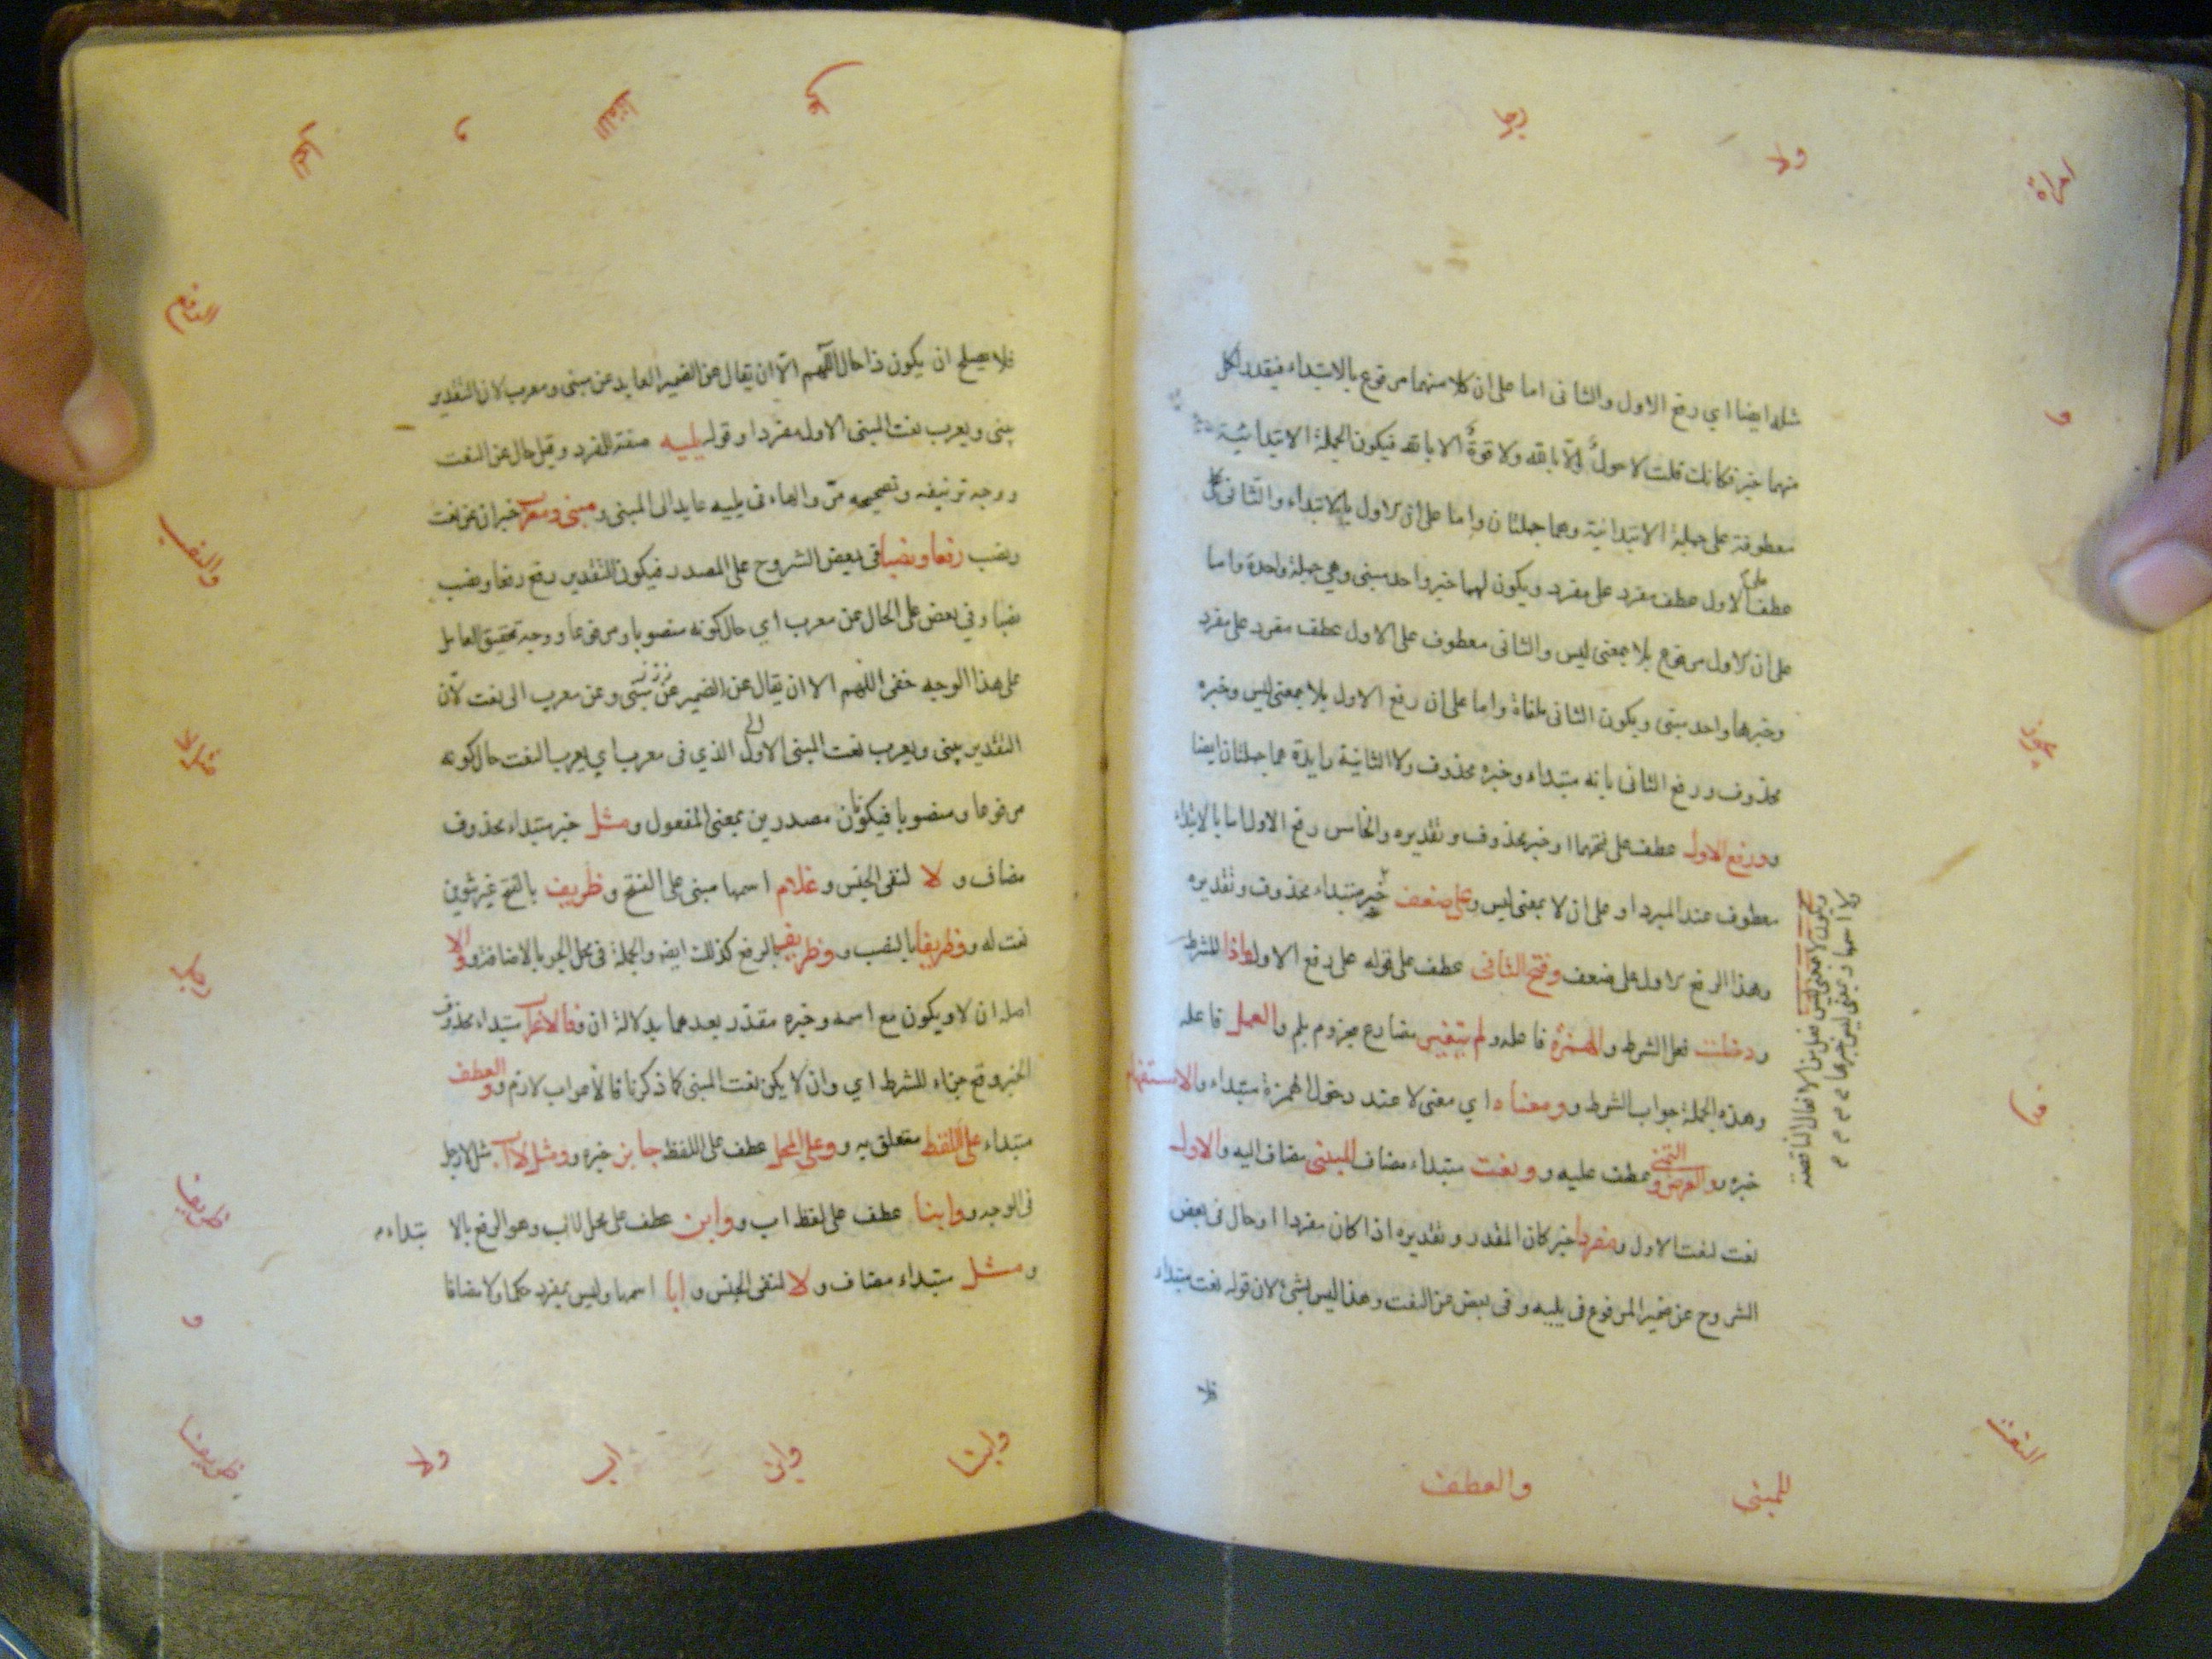 مثله ايضا اي رفع الاول والثاني اما على ان كلا منهما مرفوع بالابتداء فيقدر لكل
منهما خبر فكانك قلت لا حول الا بالله ولا قوة الا بالله فيكون الجملة الابتدائية
معطوفة على جملة الابتدائية وهما جملتان واما على ان الاول بالابتداء والثاني
عطف على الاول عطف مفرد على مفرد ويكون لهما خبر واحد مبني وهي جملة واحدة واما
على ان الاول مرفوع بلا بمعنى ليس والثاني معطوف على الاول عطف مفرد على مفرد
وخبرها واحد مبنى ويكون الثاني ملغاة واما على ان رفع الاول بلا بمعنى ليس وخبره
محذوف ورفع الثاني بانه مبتداء وخبره محذوف ولا الثانية زايدة هما جملتان ايضا
ورفع الاول عطف على فتحهما او خبر محذوف وتقديره والخامس رفع الاول اما بالابتداء
معطوف عند المبرد او على ان لا بمعنى ليس وعلى ضعف خبر مبتداء محذوف وتقديره
وهذا الرفع الاول على ضعف وفتح الثاني عطف على قوله على رفع الاول واذا للشرط
ودخلت فعل الشرط والهمزة فاعله ولم يتغير مضارع مجزوم بلم والعمل فاعله
وهذه الجملة جواب الشرط وومعناه اي معنى لا عند دخول الهمزة مبتداء والاستفهام
خبره ووالعرض والتمنى عطف عليه وونعت مبتداء مضاف المبنى مضاف اليه والاول
نعت لنعت الاول ومفردا خبر كان المقدر وتقديره اذا كان مفردا او حال في بعض
الشروح عن ضمير المرفوع في يليه وفي بعض عن النعت وهذا ليس بشئ لان قوله نعت مبتداء
فلا
ويكون لا بمعنى ليس فعل من الافعال الناقصة
امراة
ولا
و
للمبنى
والعطف
فلا يصلح ان يكون ذا حال اللهم الا ان يقال عن الضمير العايد عن مبنى ومعرب لان التقدير
يبنى ويعرب نعت المبنى الاول مفردا وقوله يليه صفة لمفرد وقيل حال عن النعت
ووجه تزييفه وتصحيحه مر والهاء في يليه عايد الى المبنى ومبنى ومعرب خبران عن نعت
ونصب رفعا ونصبا في بعض الشروح على المصدر فيكون التقدير رفع رفعا ونصب
نصبا وفي بعض على الحال عن معرب اي حال كونه منصوبا ومرفوعا ووجه تحقيق العامل
على هذا الوجه خفى اللهم الا ان يقال عن الضمير عن مبنى وعن معرب الى نعت لان
التقدير يبنى ويعرب نعت المبنى الاول الذي في معرب اي يعرب النعت حال كونه
مرفوعا ومنصوبا فيكونان مصدرين بمعنى المفعول ومثل خبر مبتداء محذوف
مضاف ولا لنفى الجنس وغلام اسمها مبنى على الفتح وظريف بالفتح غير تنوين
نعت له ووظريفا بالنصب ووظريف بالرفع كذلك ايضا والجملة في محل الجر بالاضافة ووالا
اصله ان لا ويكون مع اسمه وخبره مقدر بعدهما بدلالة ان وفالاعراب مبتداء محذوف
الخبر وقع جزاء للشرط اي وان لا يكن نعت المبنى كما ذكرنا فالاعراب لازم ووالعطف
مبتداء على اللفظ متعلق به ووعلى المحل عطف على اللفظ جايز خبره وومثل لا اب مثل لا رجل
في الوجه ووابنا عطف على لفظ اب ووابن عطف على محل لا اب وهو الرفع بالا بتداء
ومثل مبتداء مضاف ولا لنفى الجنس وابا اسمها وليس بمفرد حكما ولا مضافا
والنصب
و
ولا
اب
وابن
وابنا